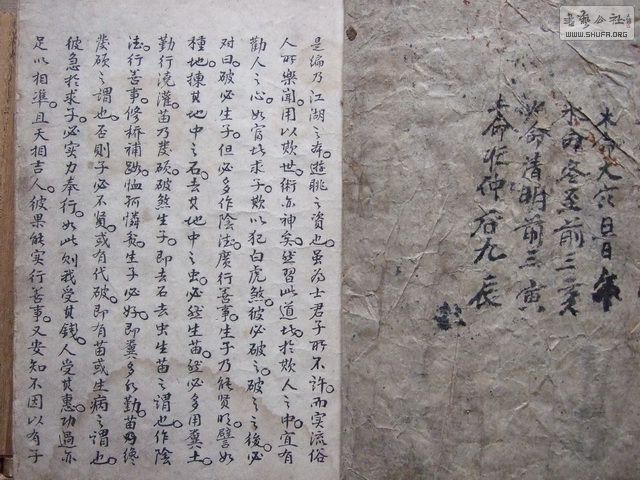 木命大六日
水命冬至前三亥
火命清明前三寅
土命
九辰
是編乃江湖之本遊眺之資也。雖為士君子所不許。而实流俗
人所樂聞。用以欺世。術亦神矣。然習此道者。於欺人之中宜有
勸人之心。如富者求子。欺以犯白虎煞。彼必破之。破之之後。必
对曰。破必生子。但必多作陰德。廣行善事。生子乃能賢明。譬如
種地。揀其地中之石。去其地中之虫。必然生苗。然必多用糞土。
勤行澆灌。苗乃茂碩。破煞生子。即去石去虫生苗之謂也。作陰
德。行善事。修橋補路。恤孤憐貧。生子必好。即糞多水勤。苗乃
茂碩之謂也。否則子必不賢。或有代破。即有苗或生病之謂也。
彼急於求子。必实力奉行。如此則我受其錢。人受其惠。功過亦
足以相準。且天相吉人。彼果能实行善事。又安知不因以有子
書法公社
WWW.SHUFA.ORG